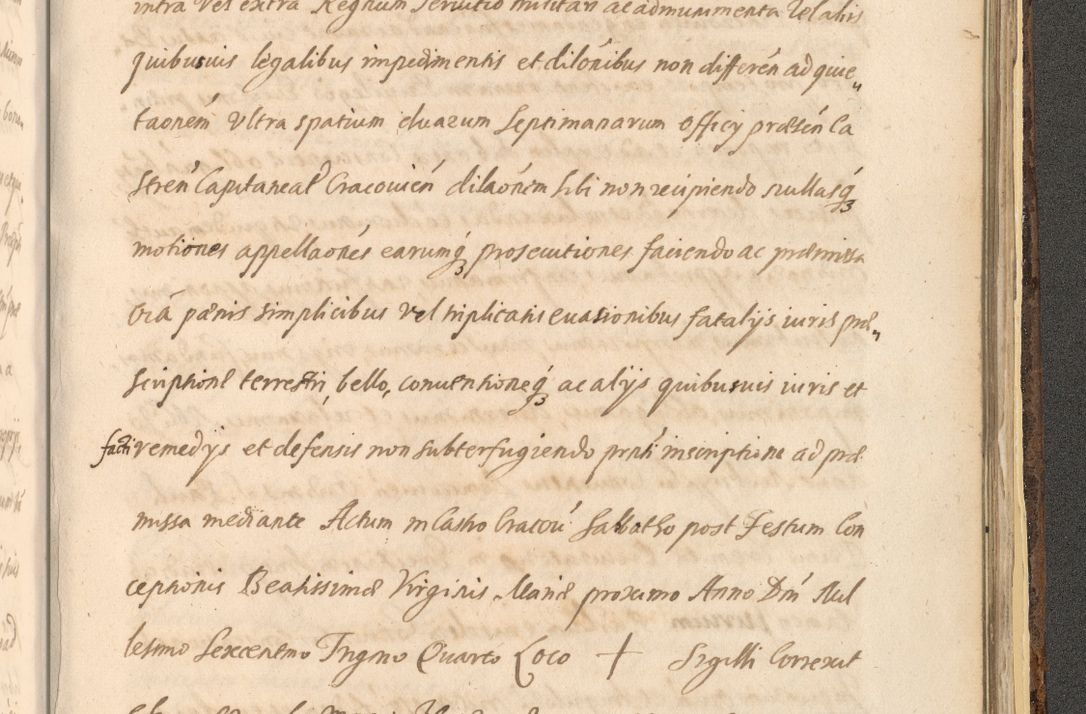 intra Vel extra Regnum servitio militari ac admunimenta Vel alis
quibusuis legalibus impedimentis et dilōnibus non differēn ad quie„
taonēm Vltra spatium duarum Septimanarum officÿ præsēn Ca
strēn Capitaneal Cracouiēn dilaōnem sibi non recipiendo nullasq3
motiones appellaonēs earumq3 prosecutiones faciendo ac præmissa
oiā pænis simplicibus Vel triplicatis euasionibus fatalÿs iuris præ„
scriptione terrestri, bello, conuentioneq3 ac alÿs quibusuis iuris et
facti remedÿs et defensis non subterfugiendo prnti inscriptione ad præ
missa mediante Actum in Castro Cracou Sabbatho post Festum Con
ceptionis Beatissimæ Virginis Mariæ proximo Anno Dni Mil
lesimo Sexcentmo Trigmo Quarto Loco + Sigilli Correxit